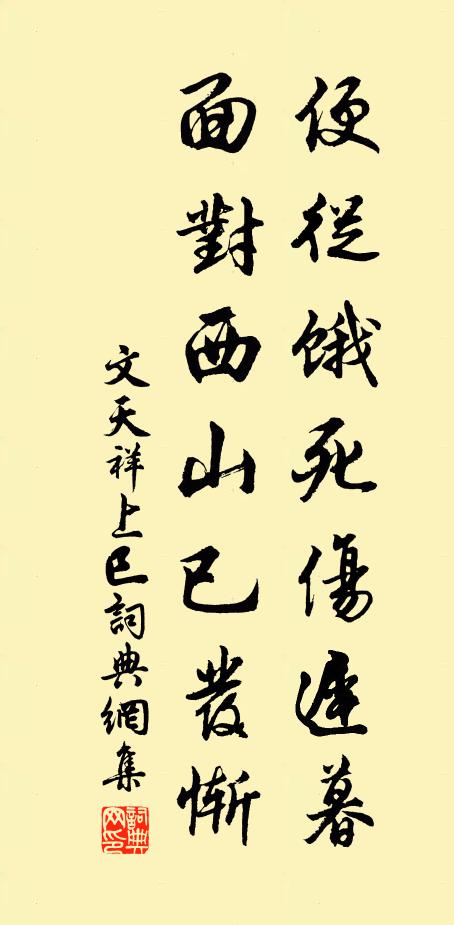 便從餓死傷遲暮
面對西山已發慚
文天祥上巳詞典網集
詞典網印